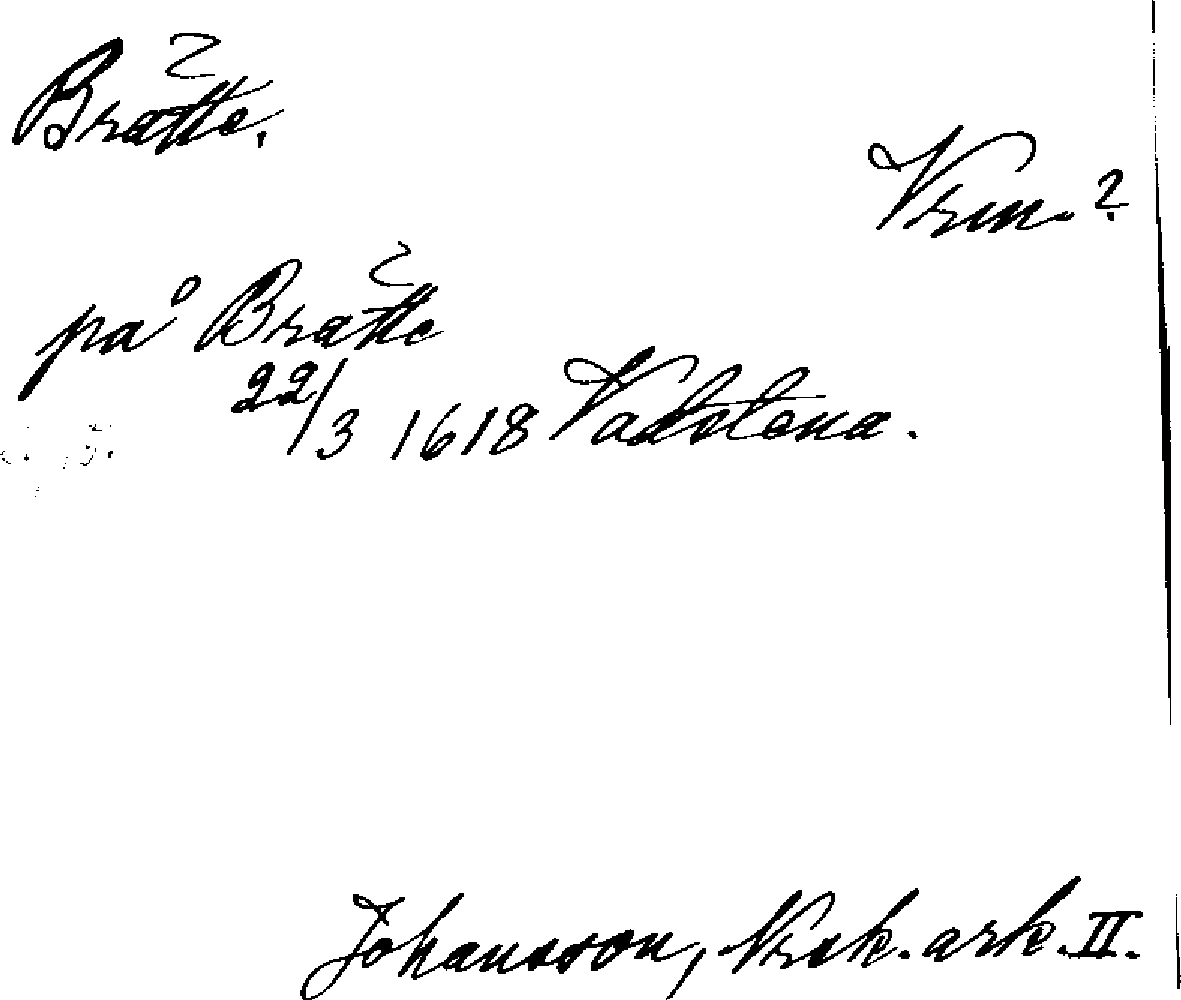 Bratte.
Vrm.?
på Bratte
22/3 1618 Vadstena.
Johansson, Nrsk. ark. II.